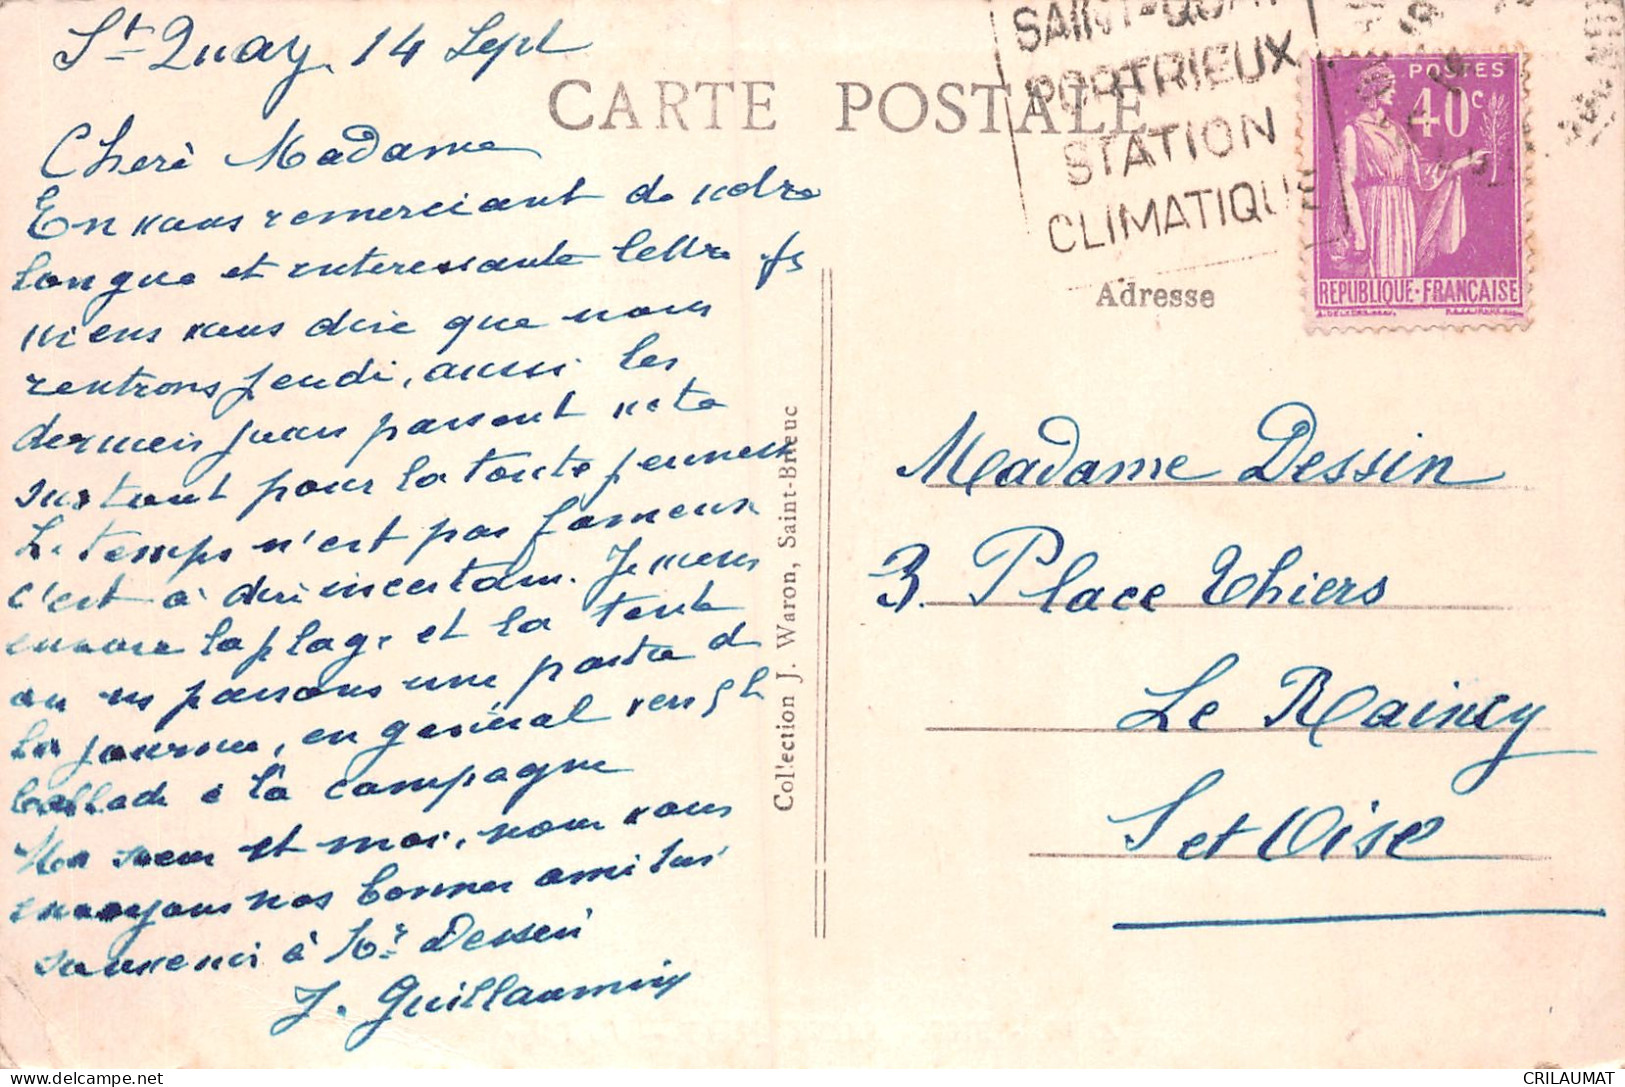 St Quay, 14 Sept
Cheré Madame
En vous remerciant de votre
longue et interessante lettre je
viens vous dire que nous
rentrons jeudi, aussi les
derniers jours passent vite
surtout pour la toute jeunesse
Le temps n'est pas fameux
c'est à dire incertain. Je mens
encore la plage et la toute
on ns passons une partie d
la journée, en general
ballade à la campagne
Ma soeur et moi, nous vous
envoyons nos bonnes amities
souvenir à Mr Dessin
J. Guillaumin
CARTE POSTALE
SAINT-QUAY
PORTRIEUX
STATION
CLIMATIQUE
POSTES
40c
REPUBLIQUE·FRANCAISE
Adresse
Madame Dessin
3. Place Thiers
Le Raincy
S et Oise
Collection J. Waron, Saint-Brieuc
CRILAUMAT